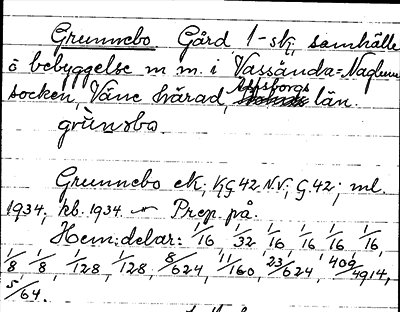 Grunnebo Gård, 1-sk, samhälle
o bebyggelse m m. i Vassända-Naglum
socken, Väne härad, Älvsborgs län.
grùnəbo
Grunnebo ek; KG. 42 N.V.; G. 42; ml.
1934, kb. 1934. Prep. på.
Hem: delar: 1/16 1/32 1/16 1/16 1/16 1/16,
1/8, 1/8, 1/128, 1/128, 8/624, 11/160, 23/624, 409/4914,
5/64.